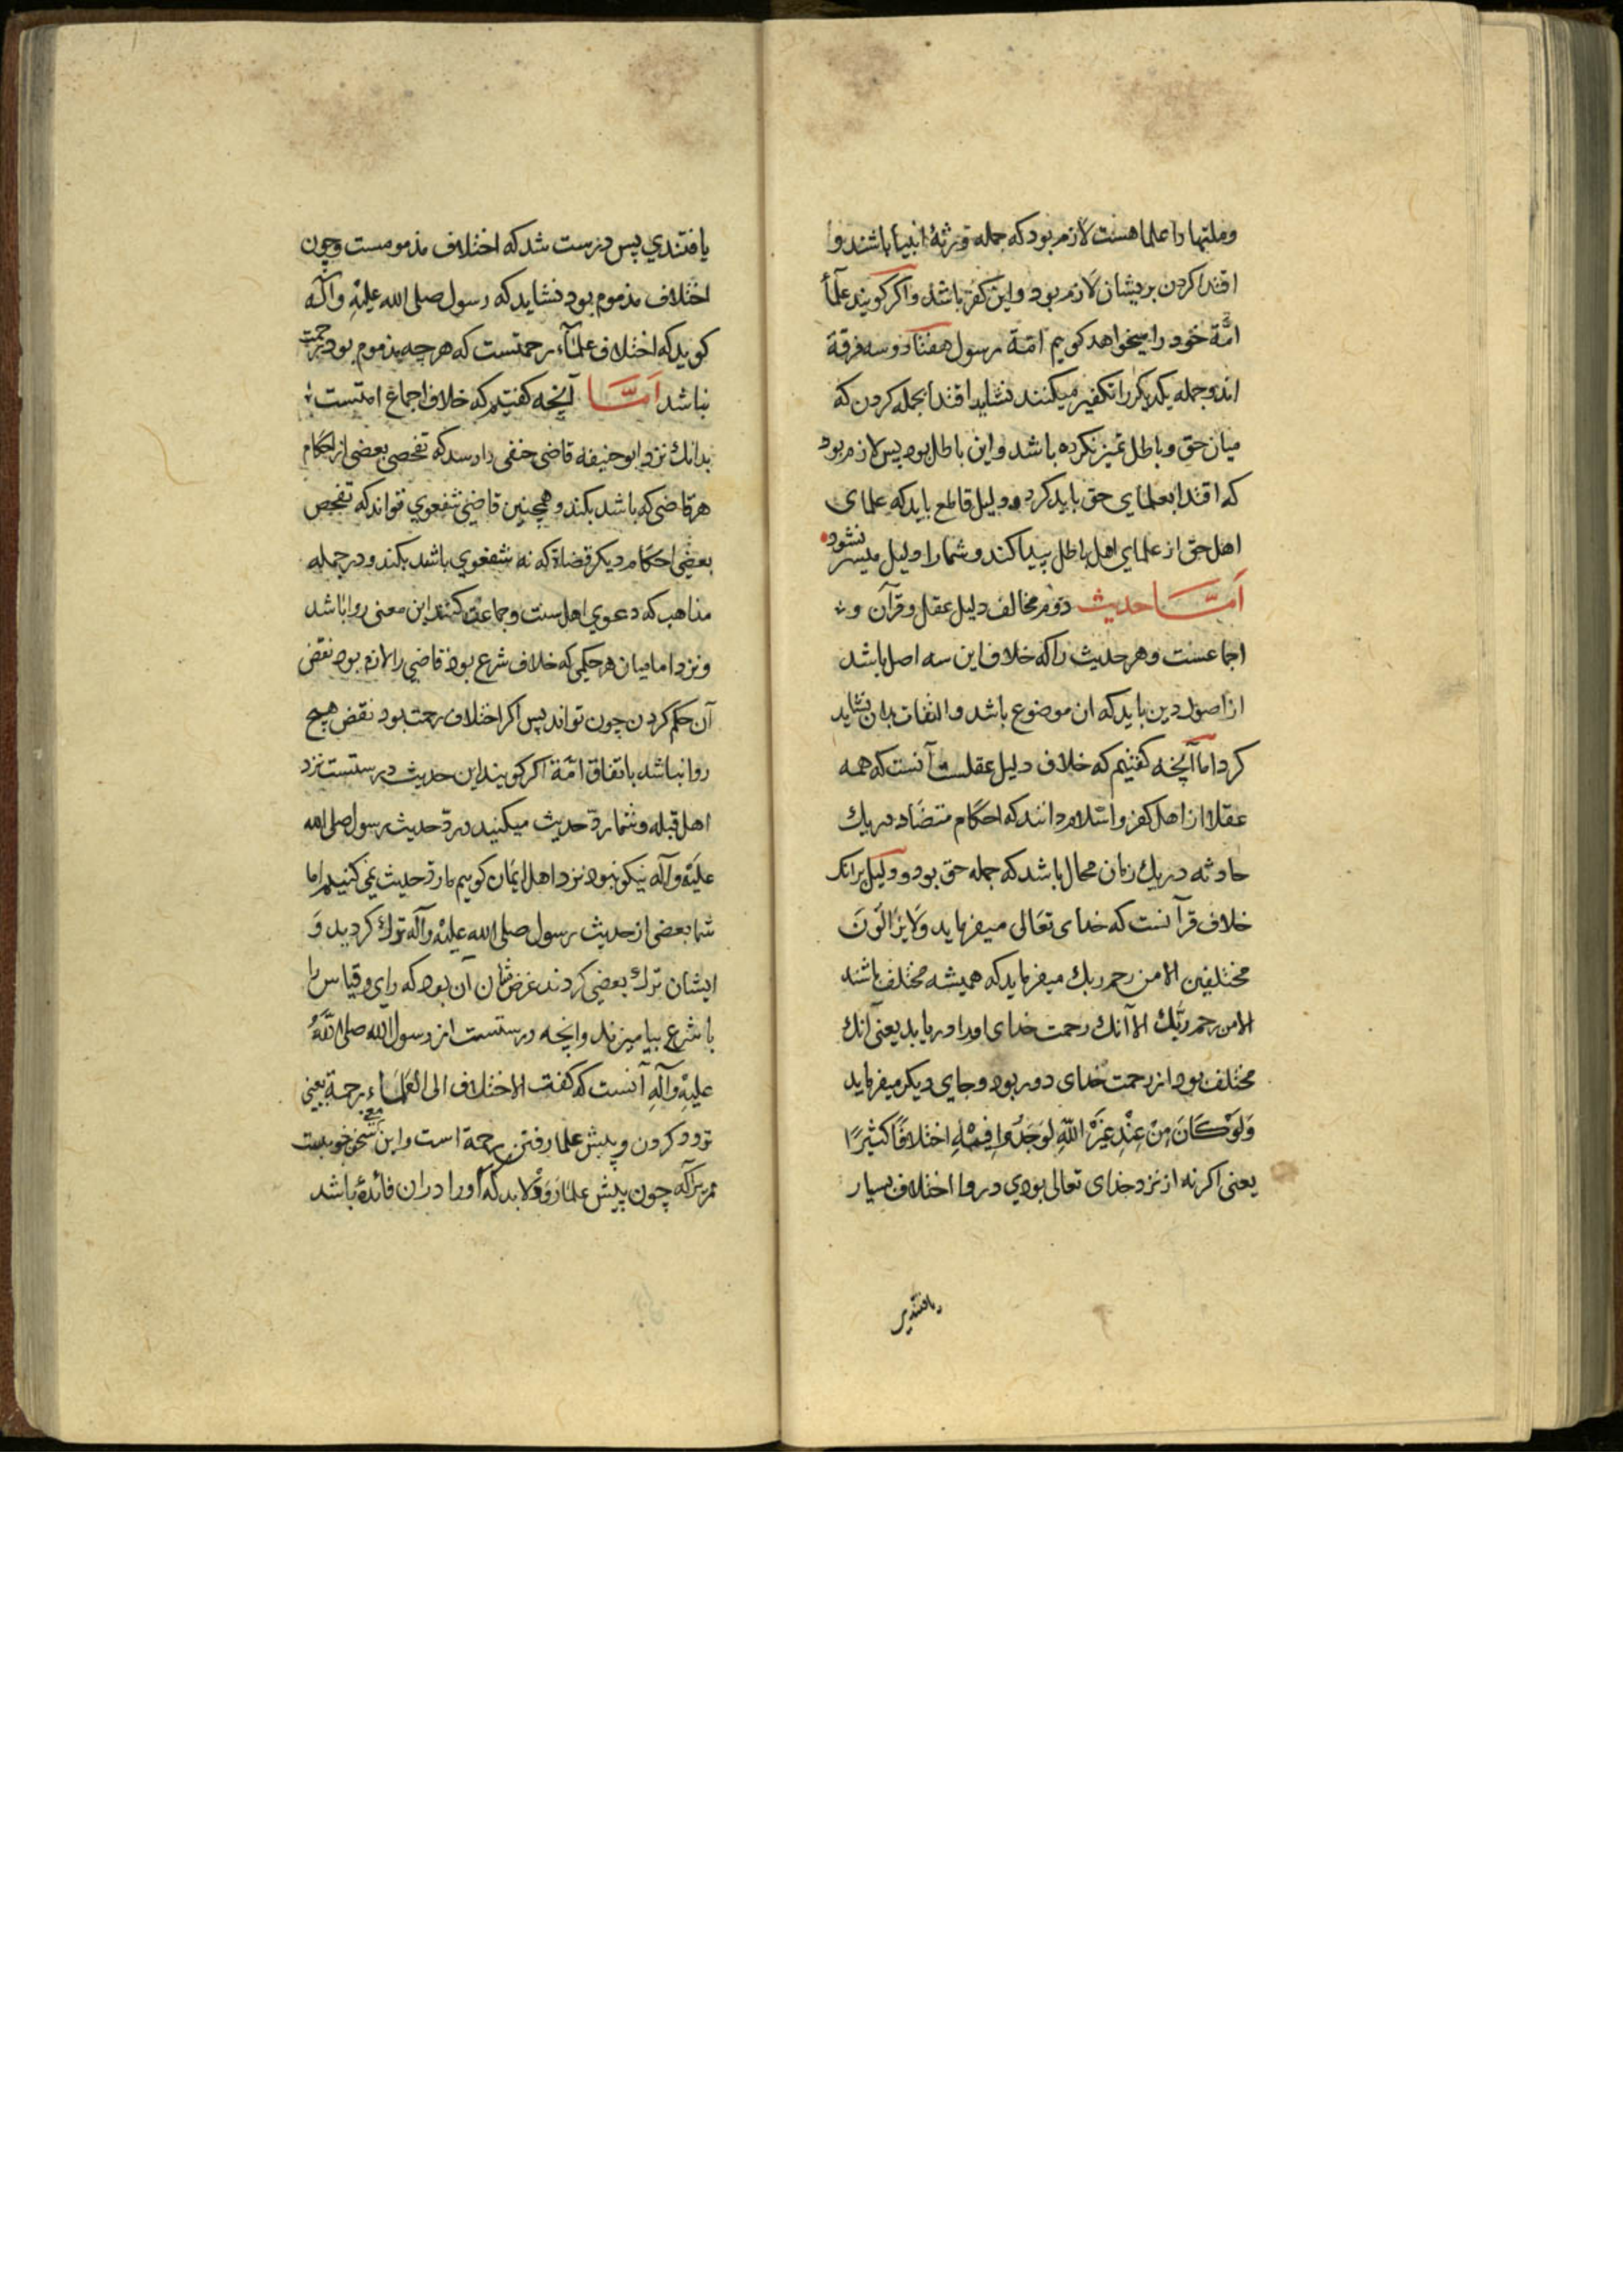 وملتها را علما هست لازم بود که جمله ورثهٔ انبیا باشند و
اقتدا کردن بریشان لازم بود و این کفر باشد واکر کویند علمآء
امّة خود را میخواهد کوییم امّة رسول هفتاد وسه فرقة
اند وجمله یکدیکر را تکفیر میکنند نشاید اقتدا بجمله کردن که
میان حق وباطل تمیز نکرده باشد واین باطل بود پس لازم بود
که اقتدا بعلمای حق باید کرد ودلیل قاطع باید که علمای
اهل حق از علمای اهل باطل پیدا کند وشما را دلیل میسر نشود
اَمّا حدیث دوّم مخالف دلیل عقل وقرآن و
اجماعست وهر حدیث را که خلاف این سه اصل باشد
از اصول دین باید که ان موضوع باشد والتفات بدان نشاید
کرد اما آنچه کفتیم که خلاف دلیل عقلست آنست که همه
عقلا از اهل کفر واسلام دانند که احکام متضاد در یك
حادثه در یك زمان محال باشد که جمله حق بود ودلیل برانک
خلاف قرآنست که خدای تعالی میفرماید وَلَا یَزَالُونَ
مختلفین الا من رحم ربك میفرماید که همیشه مختلف باشند
الا من رحم ربّك الا آنك رحمت خدای اورا دریابد یعنی آنك
مختلف بود از رحمت خدای دور بود وجای دیکر میفرماید
وَلَوْ کَانَ مِنْ عِنْدِ غَیْرِ اللّهِ لَوَجَدُوا فِیهِ اختلافًا کثیرًا
یعنی اکر نه از نزد خدای تعالی بودي درو اختلاف بسیار
یافتندي
یافتندي پس درست شد که اختلاف مذمومست وچون
اختلاف مذموم بود نشاید که رسول صلی الله علیهِ وآله
کوید که اختلاف علمآء رحمتست که هرچه مذموم بود رحمت
نباشد اَمّا آنچه کفتیم که خلاف اجماع امتست
بدانك نزد ابو حنیفه قاضی حنفی را رسد که تفحص بعضی از احکام
هر قاضی که باشد بکند وهمچنین قاضی شفعوي تواند که تفحص
بعضی احکام دیکر قضاة که نه شفعوي باشد بکند ودر جمله
مذاهب که دعوي اهل سنت وجماعت کنند این معنی روا باشد
ونزد امامیان هر حکمی که خلاف شرع بود قاضی را لازم بود نقض
آن حکم کردن چون تواند پس اکر اختلاف رحمت بود نقض هیچ
روا نباشد باتفاق امّة اکر کویند این حدیث درستست نزد
اهل قبله وشما ردّ حدیث میکنید وردّ حدیث رسول صلی الله
علیه وآله نیکو نبود نزد اهل ایمان کوییم ما ردّ حدیث نمی کنیم اما
شما بعضی از حدیث رسول صلی الله علیه وآله ترك کردید وَ
ایشان ترك بعضی کردند غرض شان آن بود که رای وقیاس را
با شرع بیامیزند وانچه درستست از رسول الله صلی اللّهُ
علیهِ وآلهِ آنست که کفت الاختلاف الی العلماء رحمة یعنی
تردد کردن وپیش علما رفتن رحمة است واین سخن خوبست
مر برآکه چون پیش علما رود لابد که اورا دران فائدهٔ باشد